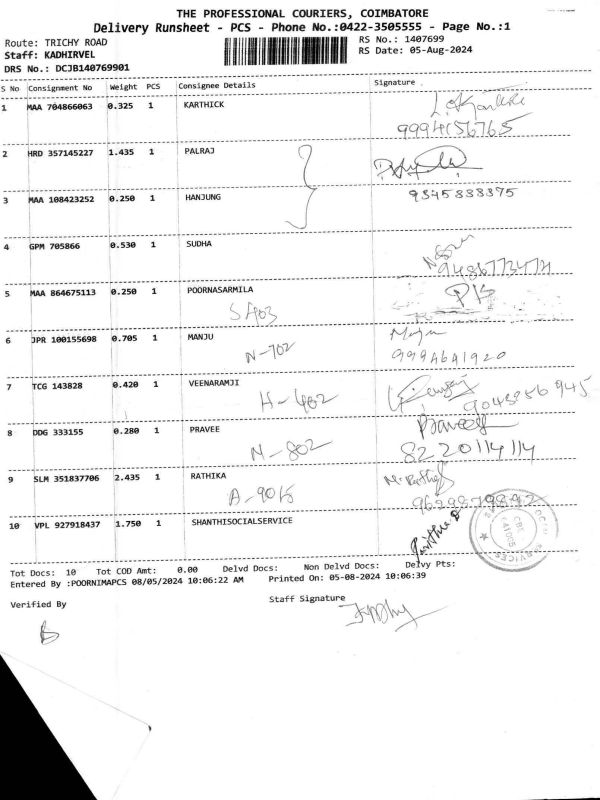 THE PROFESSIONAL COURIERS, COIMBATORE
Delivery Runsheet - PCS - Phone No.:0422-3505555 - Page No.:1
Route: TRICHY ROAD RS No.: 1407699
Staff: KADHIRVEL RS Date: 05-Aug-2024
DRS No.: DCJB140769901
S No Consignment No Weight PCS Consignee Details Signature
1 MAA 704866063 0.325 1 KARTHICK
9994156765
2 HRD 357145227 1.435 1 PALRAJ
3 MAA 108423252 0.250 1 HANJUNG 9345838375
4 GPM 705866 0.530 1 SUDHA
9486773474
5 MAA 864675113 0.250 1 POORNASARMILA PK
S403
6 JPR 100155698 0.705 1 MANJU
N-702 9994641920
7 TCG 143828 0.420 1 VEENARAMJI
H-402
8 DDG 333155 0.280 1 PRAVEE Praveen
N-802 8220114114
9 SLM 351837706 2.435 1 RATHIKA
10 VPL 927918437 1.750 1 SHANTHISOCIALSERVICE
Tot Docs: 10 Tot COD Amt: 0.00 Delvd Docs: Non Delvd Docs: Delvy Pts:
Entered By :POORNIMAPCS 08/05/2024 10:06:22 AM Printed On: 05-08-2024 10:06:39
Verified By Staff Signature